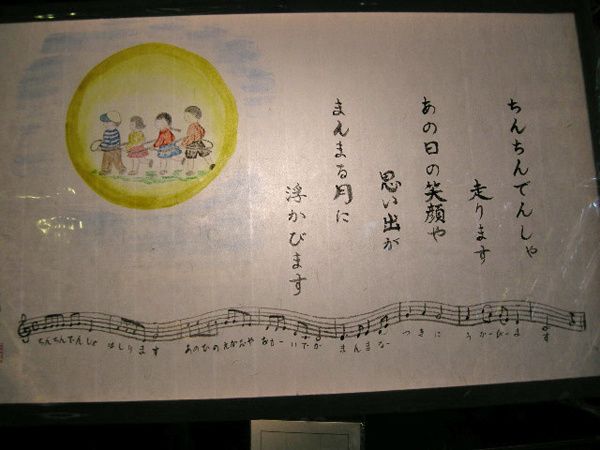 ちんちんでんしゃ
走ります
あの日の笑顔や
思い出が
まんまる月に
浮かびます
ちんちんでんしゃ はしります あのひのえがおや おもーいでが まんまるー つきに うかーびーま す